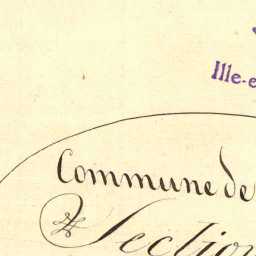 Ille-e
Commune de
Section